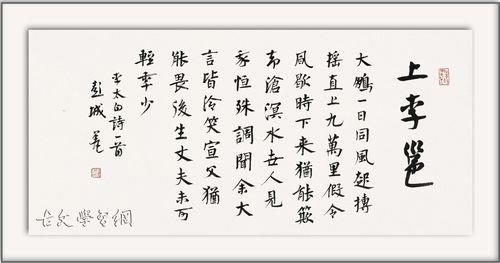 上李邕
大鵬一日同風起摶
搖直上九萬里假令
風歇時下来猶能簸
却滄溟水世人見
我恒殊調聞余大
言皆冷笑宣父猶
能畏後生丈夫未可
輕年少
李太白詩一首
彭城
古文學習網